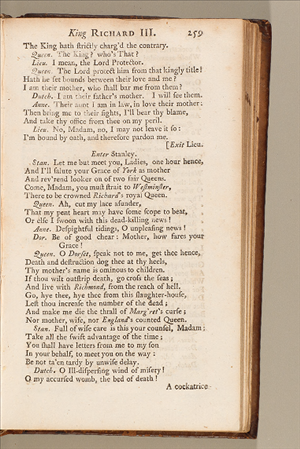 King RICHARD III. 259
The King hath ſtrictly charg'd the contrary.
Queen. The King? who's That?
Lieu. I mean, the Lord Protector.
Queen. The Lord protect him from that kingly title!
Hath he ſet bounds between their love and me?
I am their mother, who ſhall bar me from them?
Dutch. I am their father's mother. I will ſee them.
Anne. Their aunt I am in law, in love their mother:
Then bring me to their ſights, I'll bear thy blame,
And take thy office from thee on my peril.
Lieu. No, Madam, no, I may not leave it ſo:
I'm bound by oath, and therefore pardon me.
[Exit Lieu.
Enter Stanley.
Stan. Let me but meet you, Ladies, one hour hence,
And I'll ſalute your Grace of York as mother
And rev'rend looker on of two fair Queens.
Come, Madam, you muſt ſtrait to Weſtminſter,
There to be crowned Richard's royal Queen.
Queen. Ah, cut my lace aſunder,
That my pent heart may have ſome ſcope to beat,
Or elſe I ſwoon with this dead-killing news!
Anne. Deſpightful tidings, O unpleaſing news!
Dor. Be of good chear: Mother, how fares your
Grace!
Queen. O Dorſet, ſpeak not to me, get thee hence,
Death and deſtruction dog thee at thy heels,
Thy mother's name is ominous to children.
If thou wilt outſtrip death, go croſs the ſeas;
And live with Richmond, from the reach of hell.
Go, hye thee, hye thee from this ſlaughter-houſe,
Leſt thou increaſe the number of the dead;
And make me die the thrall of Marg'ret's curſe;
Nor mother, wife, nor England's counted Queen.
Stan. Full of wiſe care is this your counſel, Madam;
Take all the ſwift advantage of the time;
You ſhall have letters from me to my ſon
In your behalf, to meet you on the way:
Be not ta'en tardy by unwiſe delay.
Dutch. O Ill-diſperſing wind of miſery!
O my accurſed womb, the bed of death!
A cockatrice